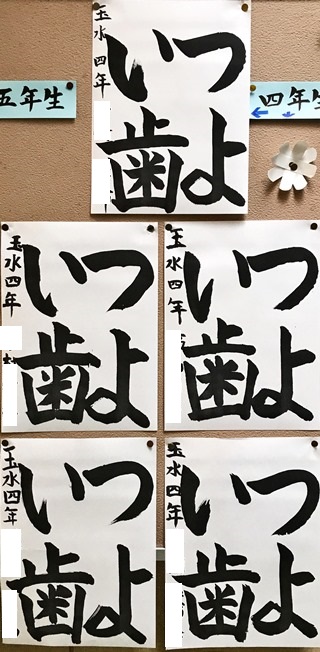 五年生
四年生
つよ
い歯
玉水四年
つよ
い歯
玉水四年
つよ
い歯
玉水四年
つよ
い歯
玉水四年
つよ
い歯
玉水四年